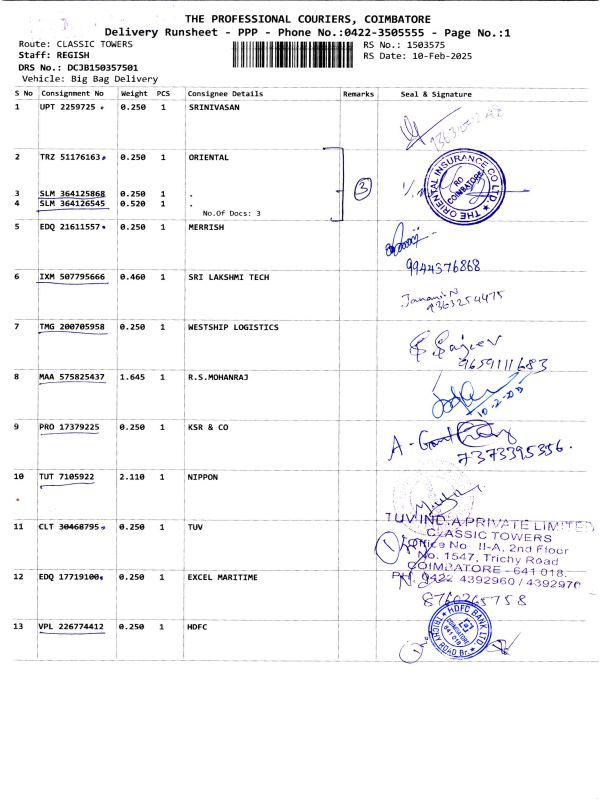 THE PROFESSIONAL COURIERS, COIMBATORE
Delivery Runsheet - PPP - Phone No.:0422-3505555 - Page No.:1
Route: CLASSIC TOWERS
RS No.: 1503575
Staff: REGISH
RS Date: 10-Feb-2025
DRS No.: DCJB150357501
Vehicle: Big Bag Delivery
S No Consignment No Weight PCS Consignee Details Remarks Seal & Signature
1 UPT 2259725 0.250 1 SRINIVASAN
2 TRZ 51176163 0.250 1 ORIENTAL
3 SLM 364125868 0.250 1 .
4 SLM 364126545 0.520 1 .
No.Of Docs: 3
3
THE ORIENTAL INSURANCE CO.LTD.
RO
COIMBATORE
5 EDQ 21611557 0.250 1 MERRISH
9944376868
6 IXM 507795666 0.460 1 SRI LAKSHMI TECH
Janani.N
9363254475
7 TMG 200705958 0.250 1 WESTSHIP LOGISTICS
9659111683
8 MAA 575825437 1.645 1 R.S.MOHANRAJ
9 PRO 17379225 0.250 1 KSR & CO
7373395356.
10 TUT 7105922 2.110 1 NIPPON
11 CLT 30468795 0.250 1 TUV
TUV INDIA PRIVATE LIMITED
CLASSIC TOWERS
Office No. II-A, 2nd Floor
No. 1547, Trichy Road
COIMBATORE - 641 018.
PH. 0422 4392960 / 4392970
12 EDQ 17719100 0.250 1 EXCEL MARITIME
8760265758
13 VPL 226774412 0.250 1 HDFC
HDFC BANK LTD.
COIMBATORE
641 018
TRICHY ROAD Br.